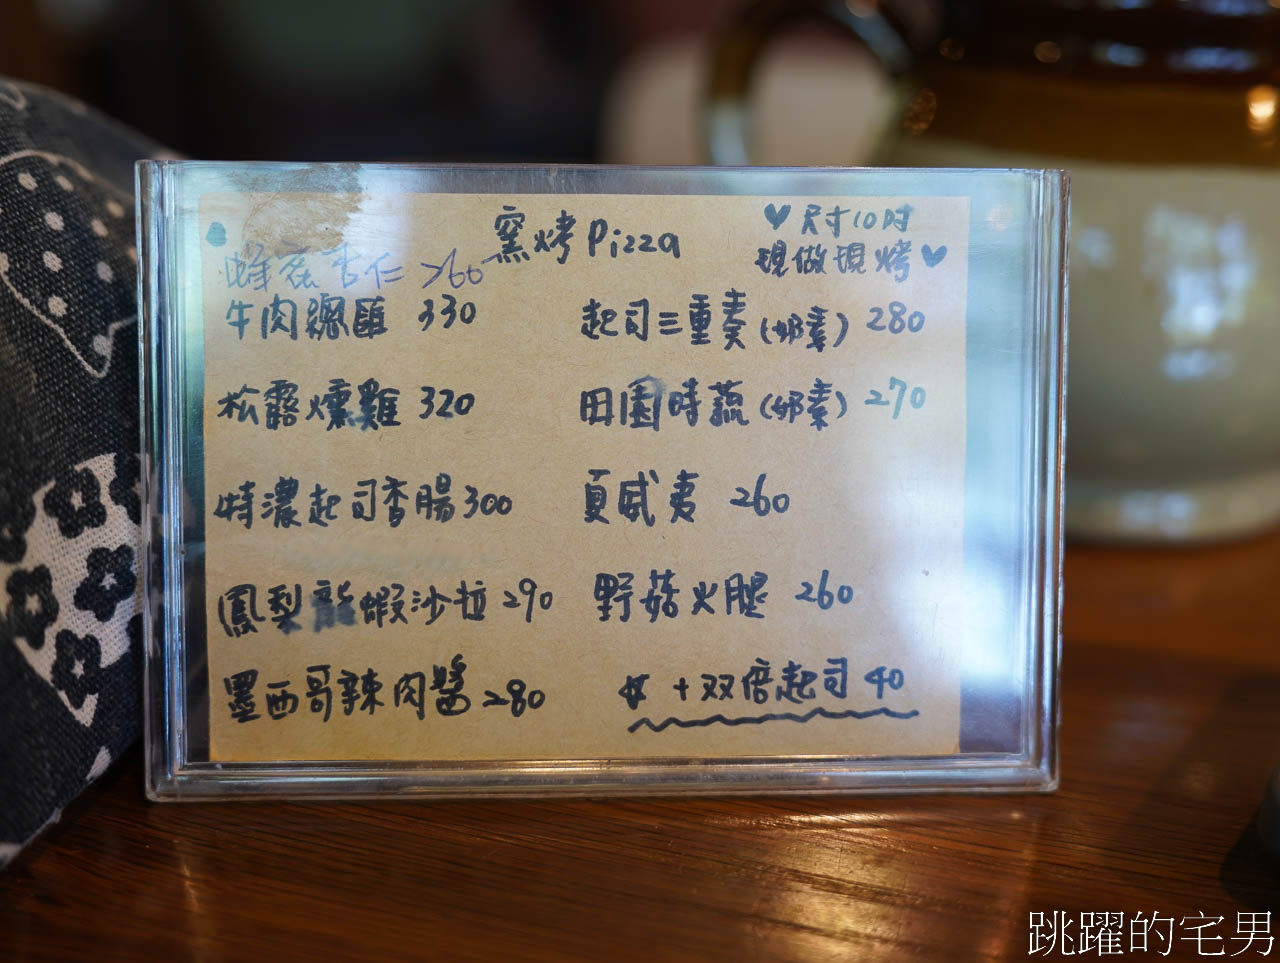 窯烤Pizza
♥尺寸10吋
現做現烤♥
蜂蜜杏仁 260
牛肉總匯 330
松露燻雞 320
特濃起司香腸 300
鳳梨龍蝦沙拉 290
墨西哥辣肉醬 280
起司三重奏(奶素) 280
田園時蔬(奶素) 270
夏威夷 260
野菇火腿 260
+双倍起司 40
跳躍的宅男